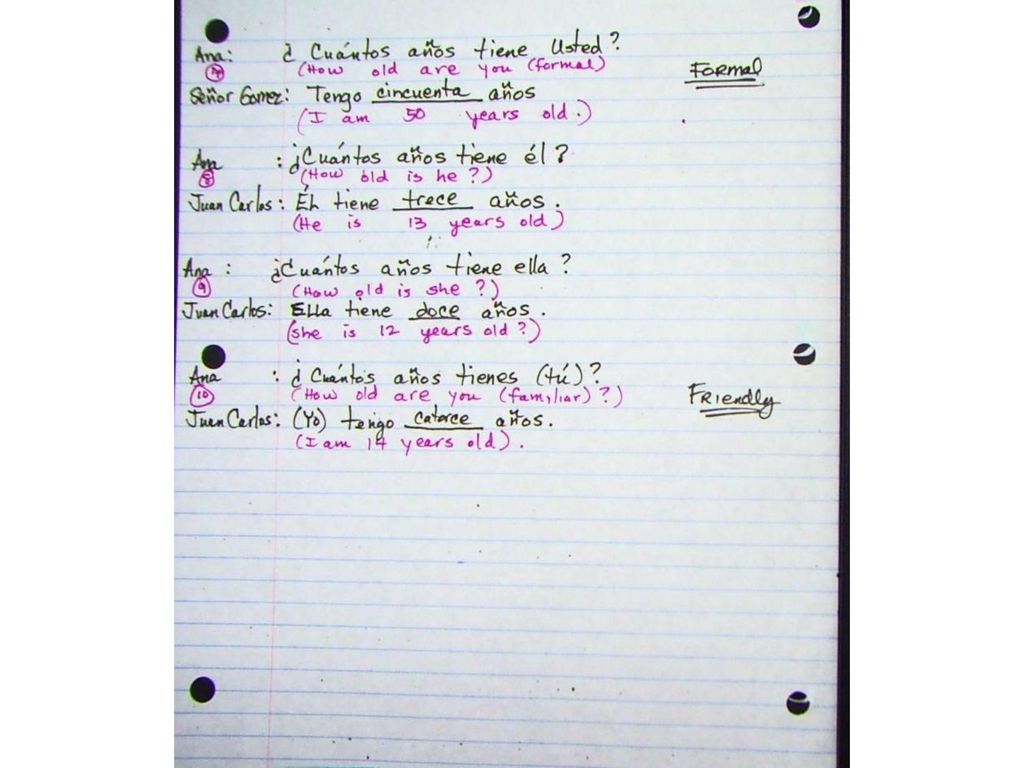 Ana: ¿ Cuántos años tiene Usted?
(How old are you (formal)
FORMAL
Señor Gomez: Tengo cincuenta años
(I am 50 years old.)
Ana : ¿Cuántos años tiene él?
8 (How old is he?)
Juan Carlos: ÉL tiene trece años.
(He is 13 years old)
Ana : ¿Cuántos años tiene ella?
9 (How old is she?)
Juan Carlos: ELLa tiene doce años.
(she is 12 years old?)
Ana : ¿ Cuántos años tienes (tú)?
10 (How old are you (familiar)?)
FRIendly
Juan Carlos: (Yo) tengo catorce años.
(I am 14 years old).